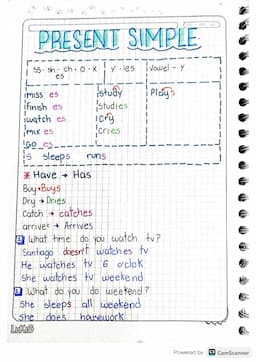 PRESENT SIMPLE
ss - sh - ch - o - x
es
y - ies
Vowel - y
miss es
finish es
watch es
mix es
Go es
study
studies
Cry
cries
Plays
s sleeps runs
* Have → Has
Buy → Buys
Dry → Dries
Catch → catches
arrives → Arrives
What time do you watch tv?
Santiago doesn't watches tv
He watches tv 6 o'clok
She watches tv weekend
What do you do weetend?
She sleeps all weekend
She does homework
Powered by CamScanner